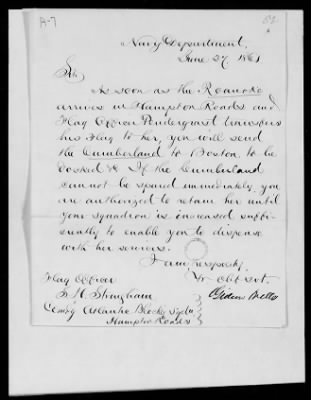 A-7
52
Navy Department,
June 27, 1861
Sir,
As soon as the Roanoke
arrives in Hampton Roads and
Flag Officer Pendergrast transfers
his flag to her, you will send
the Cumberland to Boston, to be
docked &c. If the Cumberland
cannot be spared immediately, you
are authorized to retain her until
your squadron is increased suffi-
ciently to enable you to dispense
with her services.
I am, respectfy,
Yr obt svt.
Gideon Welles
Flag Officer
S. H. Stringham
Comdg Atlantic Blockg Sqdn
Hampton Roads